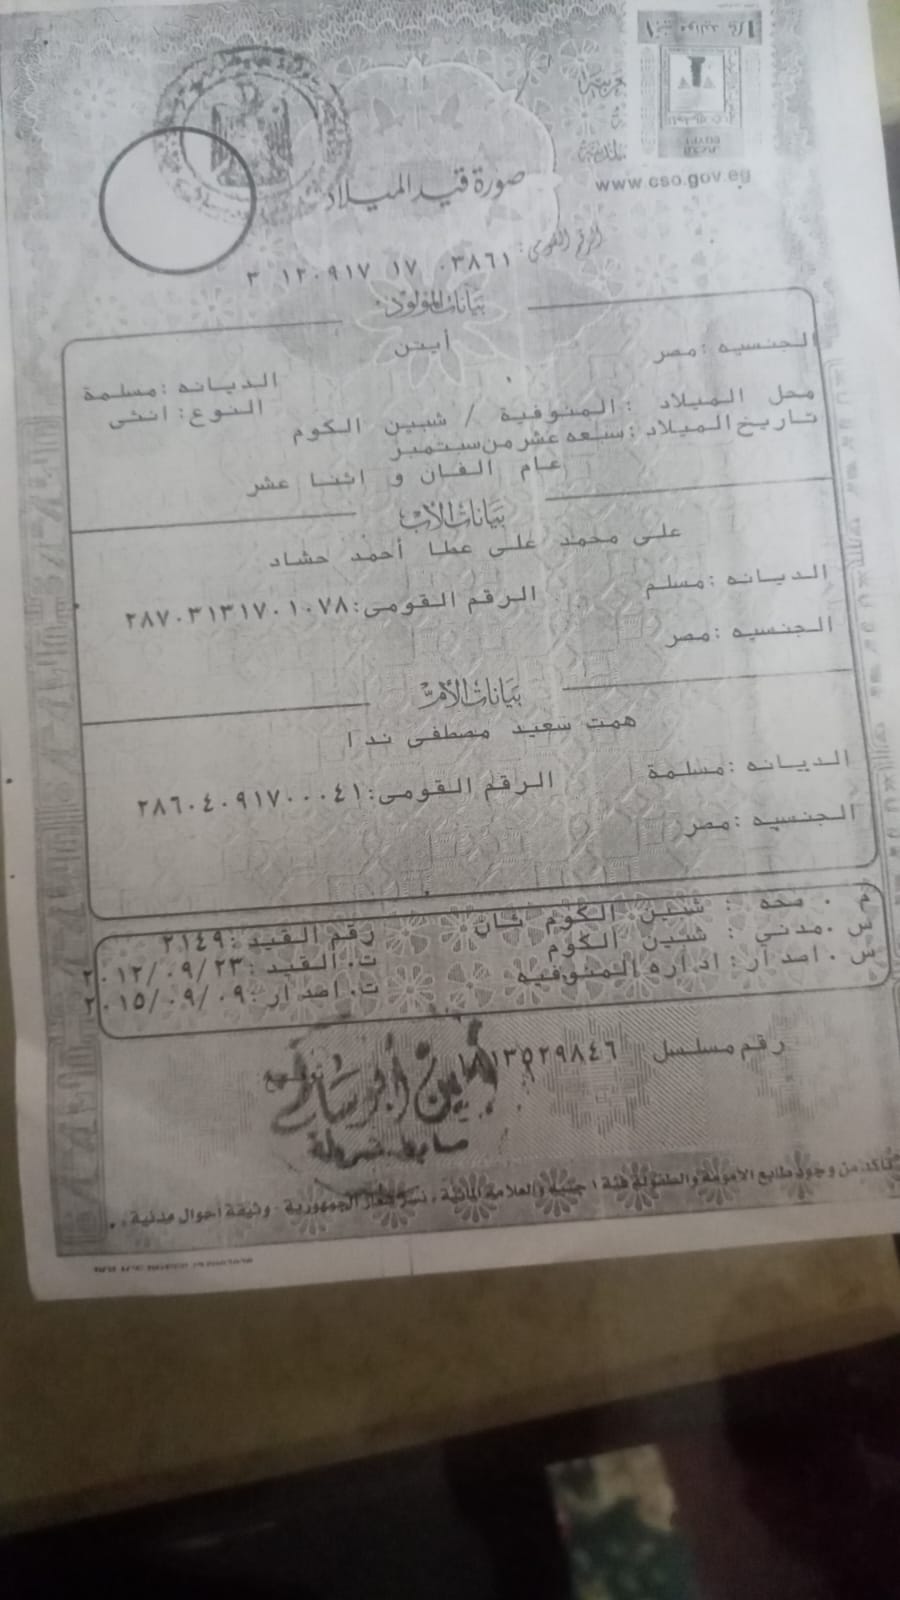 صورة قيد الميلاد
www.cso.gov.eg
الرقم القومى: ٣ ١٢٠٩١٧ ١٧ ٠٣٨٦١
بيانات المولود
أيتن
الجنسيه :مصر
الديانه :مسلمة
محل الميلاد : المنوفية / شبين الكوم
النوع: انثى
تاريخ الميلاد :سبعه عشر من سبتمبر
عام الفان و اثنا عشر
بيانات الأب
على محمد على عطا أحمد حشاد
الديانه :مسلم
الرقم القومى:٢٨٧٠٣١٣١٧٠١٠٧٨
الجنسيه :مصر
بيانات الأم
همت سعيد مصطفى ندا
الديانه :مسلمة
الرقم القومى:٢٨٦٠٤٠٩١٧٠٠٠٤١
الجنسيه :مصر
م . صحه : شبين الكوم ثان
رقم القيد :٢١٤٩
س .مدني : شبين الكوم
ت. القيد :٢٠١٢/٠٩/٢٣
س . اصدار: اداره المنوفيه
ت. اصدار :٢٠١٥/٠٩/٠٩
رقم مسلسل ١٨١٣٥٢٩٨٤٦
تأكد من وجود طابع الأمومة والطفولة فئة ١ جنيه والعلامة المائية ، نسر شعار الجمهورية - وثيقة أحوال مدنية .